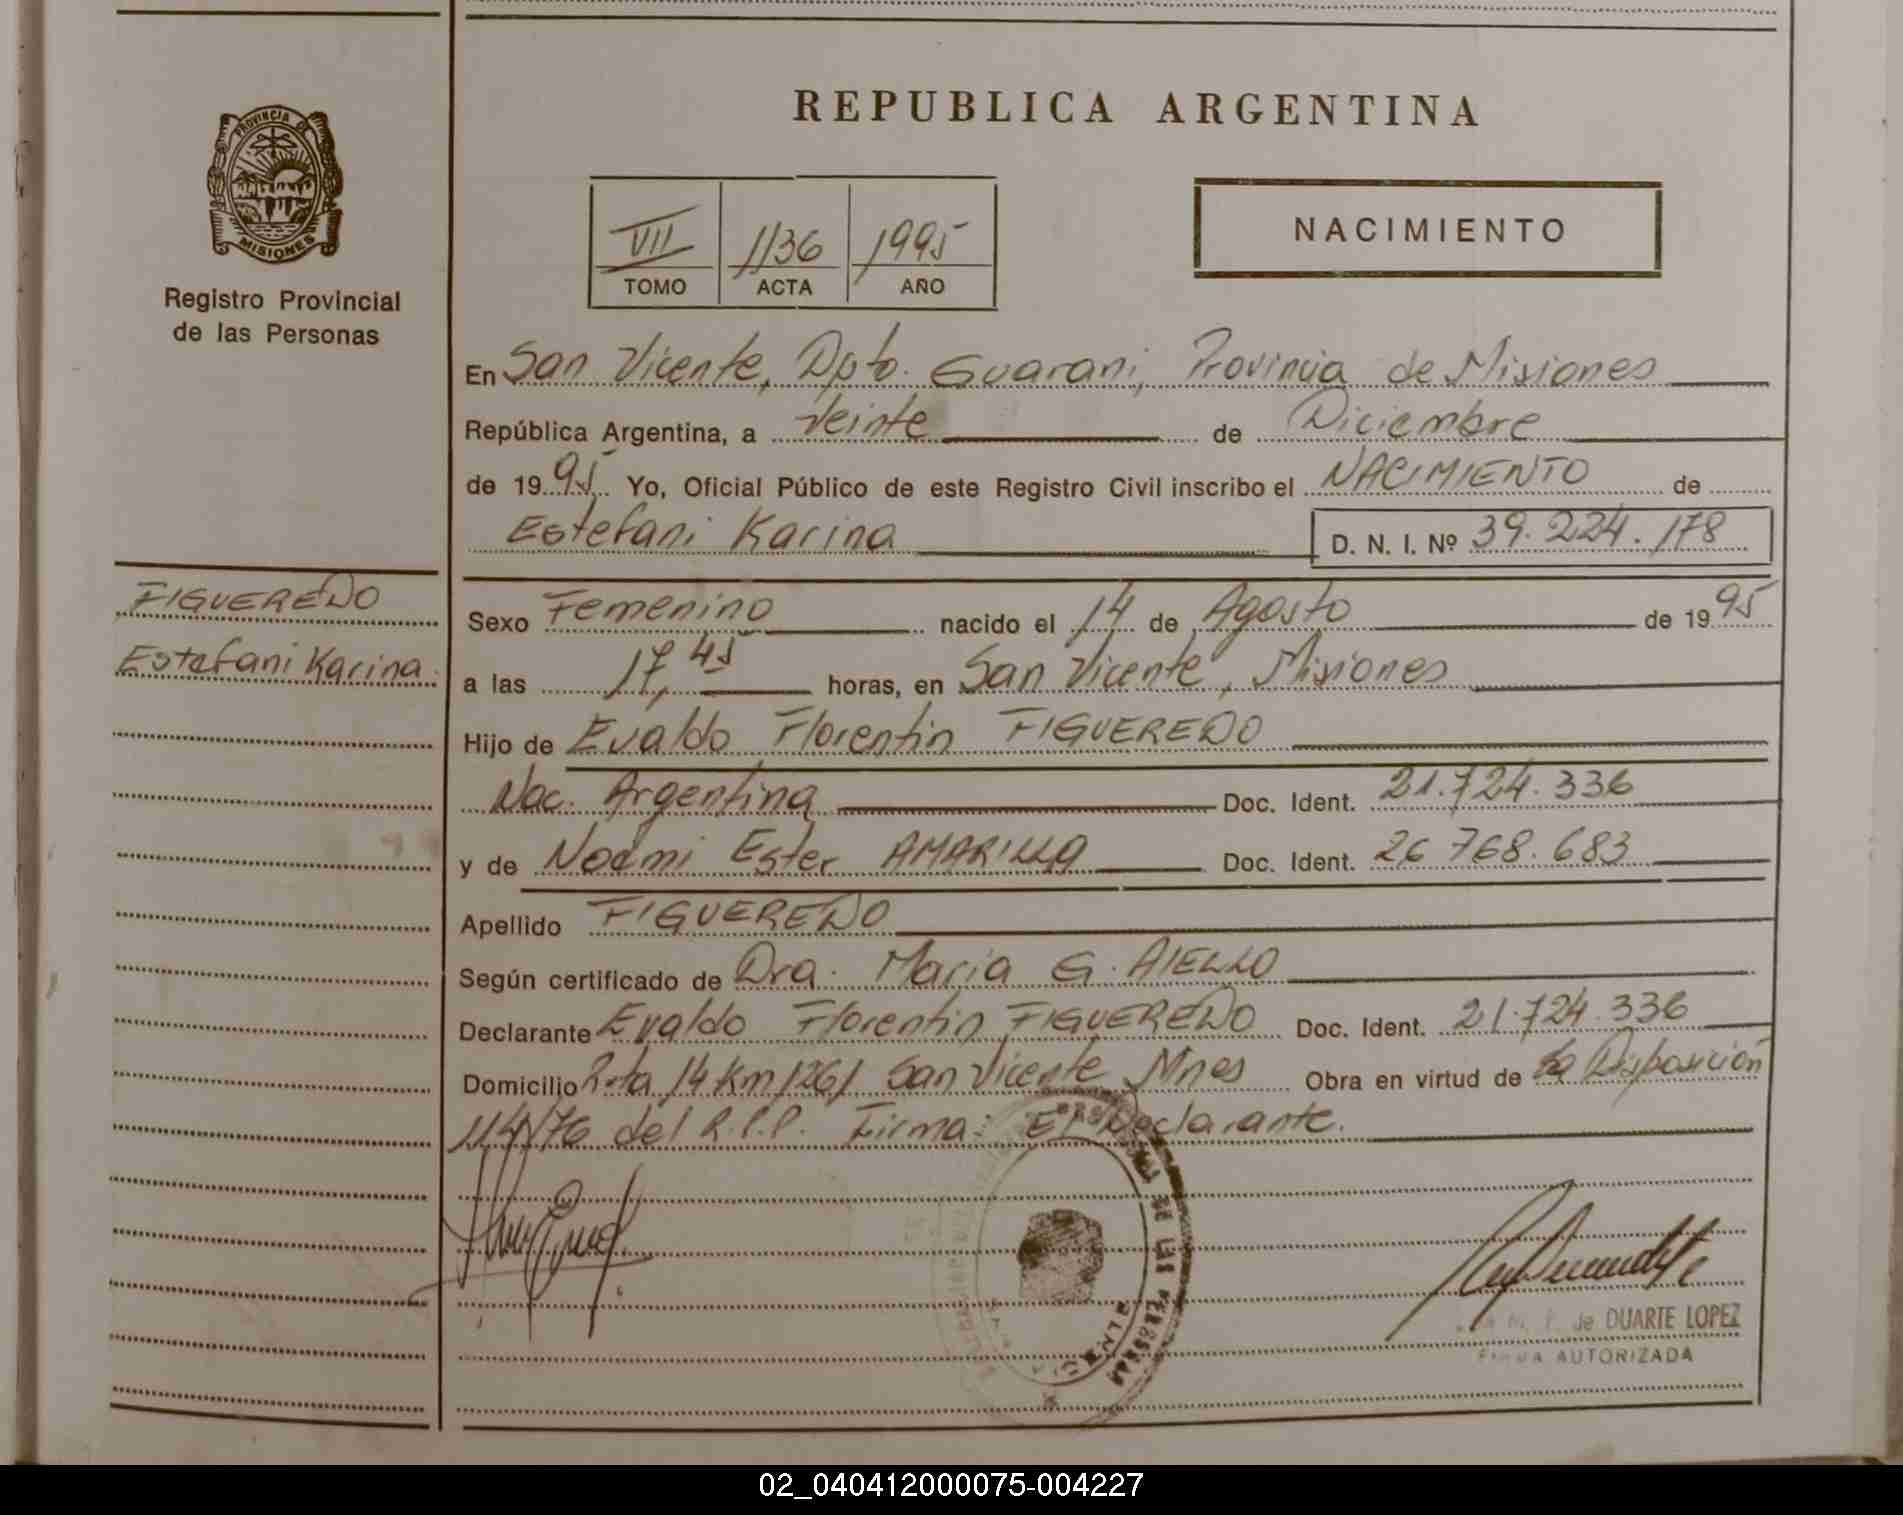 PROVINCIA DE
MISIONES
Registro Provincial
de las Personas
FIGUEREDO
Estefani Karina
REPUBLICA ARGENTINA
VII 1136 1995
TOMO ACTA AÑO
NACIMIENTO
En San Vicente, Dpto. Guarani, Provincia de Misiones
República Argentina, a Veinte de Diciembre
de 1995 Yo, Oficial Público de este Registro Civil inscribo el NACIMIENTO de
Estefani Karina D. N. I. Nº 39.224.178
Sexo Femenino nacido el 14 de Agosto de 1995
a las 17,45 horas, en San Vicente, Misiones
Hijo de Evaldo Florentin FIGUEREDO
Nac. Argentina Doc. Ident. 21.724.336
y de Noemi Ester AMARILLA Doc. Ident. 26.768.683
Apellido FIGUEREDO
Según certificado de Dra. Maria G. AIELLO
Declarante Evaldo Florentin FIGUEREDO Doc. Ident. 21.724.336
Domicilio Ruta 14 Km 1261 San Vicente Mnes Obra en virtud de la Disposición
114/76 del R.P.P. Firma: El Declarante.
DE LAS PERSONAS
de DUARTE LOPEZ
FIRMA AUTORIZADA
02_040412000075-004227